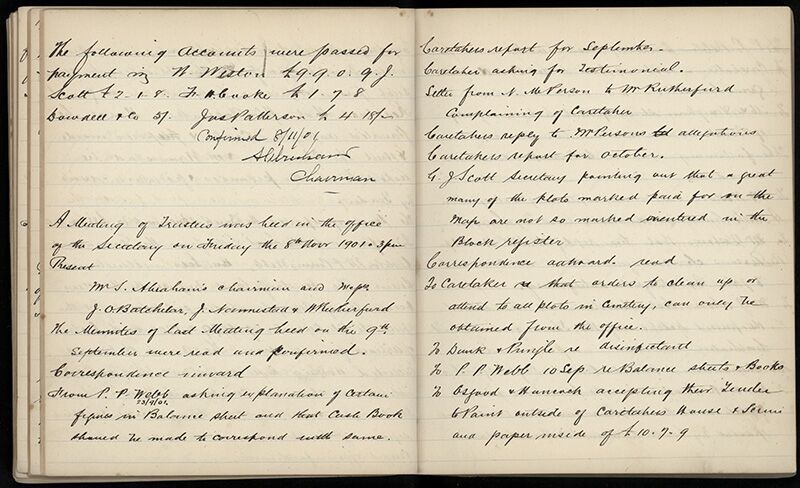 The following accounts were passed for
payment viz W. Weston £9.9.0. G. J.
Scott £2-1-8. F. H. Cooke £1-7-8
Dowdell & Co 5/. Jas Patterson £4 15/-
Confirmed 8/11/01
Chairman
A Meeting of Trustees was held in the office
of the Secretary on Friday the 8th Novr 1901 - 3pm
Present
Mr S. Abrahams chairman and
J. O. Batchelar, J. Nannestad & W Rutherfurd
The Minutes of last Meeting held on the 9th
September were read and confirmed.
Correspondence inward
From P. P. Webb 23/9/01 asking explanation of certain
figures in Balance sheet and that Cash Book
should be made to correspond with same.
Caretakers report for September.
Caretaker asking for Testimonial.
Letter from N. McPerson to Mr Rutherfurd
Complaining of Caretaker
Caretakers reply to Mr Persons allegations
Caretakers report for October.
G. J Scott Secretary pointing out that a great
many of the plots marked paid for on the
Map are not so marked entered in the
Block register
Correspondence outward read
To Caretaker that orders to clean up or
attend to all plots in Cemetery, can only be
obtained from the office.
To & re disinfectant
To P. P. Webb 10 Sep re Balance sheets & Books
To Osgood & Hancock accepting their Tender
to Paint outside of Caretakers House &
and paper inside of £10-7-9